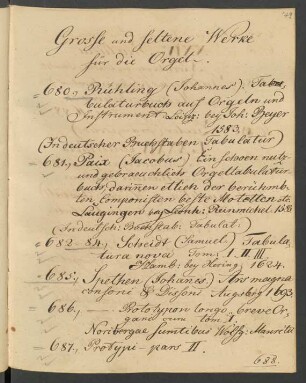 Grosse und seltene Werke
für die Orgel.
680., Rühling (Johannes). Tabu
bulaturbuch auf Orgeln und
Instrument Leipz: bei Joh: Beyer
1583.
(In deutscher Buchstaben Tabulatur)
681., Paix (Jacobus) Ein schoen nutz
und gebrauchlich Orgeltabulatur
buch, darinnen etlich der berühmb-
ten Componisten beste Motetten etc
Laugingen Reinmichel. 1583
(In deutsch: Buchstab: Tabulat:)
682-84., Scheidt (Samuel) Tabula-
tura nova Tom: I. II. III.
Hamb: bei Hering 1624.
685., Spethen (Johannes). Ars magna
Consoni & Dissoni Augsburg 1693.
686., —— Prototypon longo, breve Or-
ganicum tom I.
Noribergae Sumtibus Wolfg: Mauritii
687., Protypi - pars II.
688.